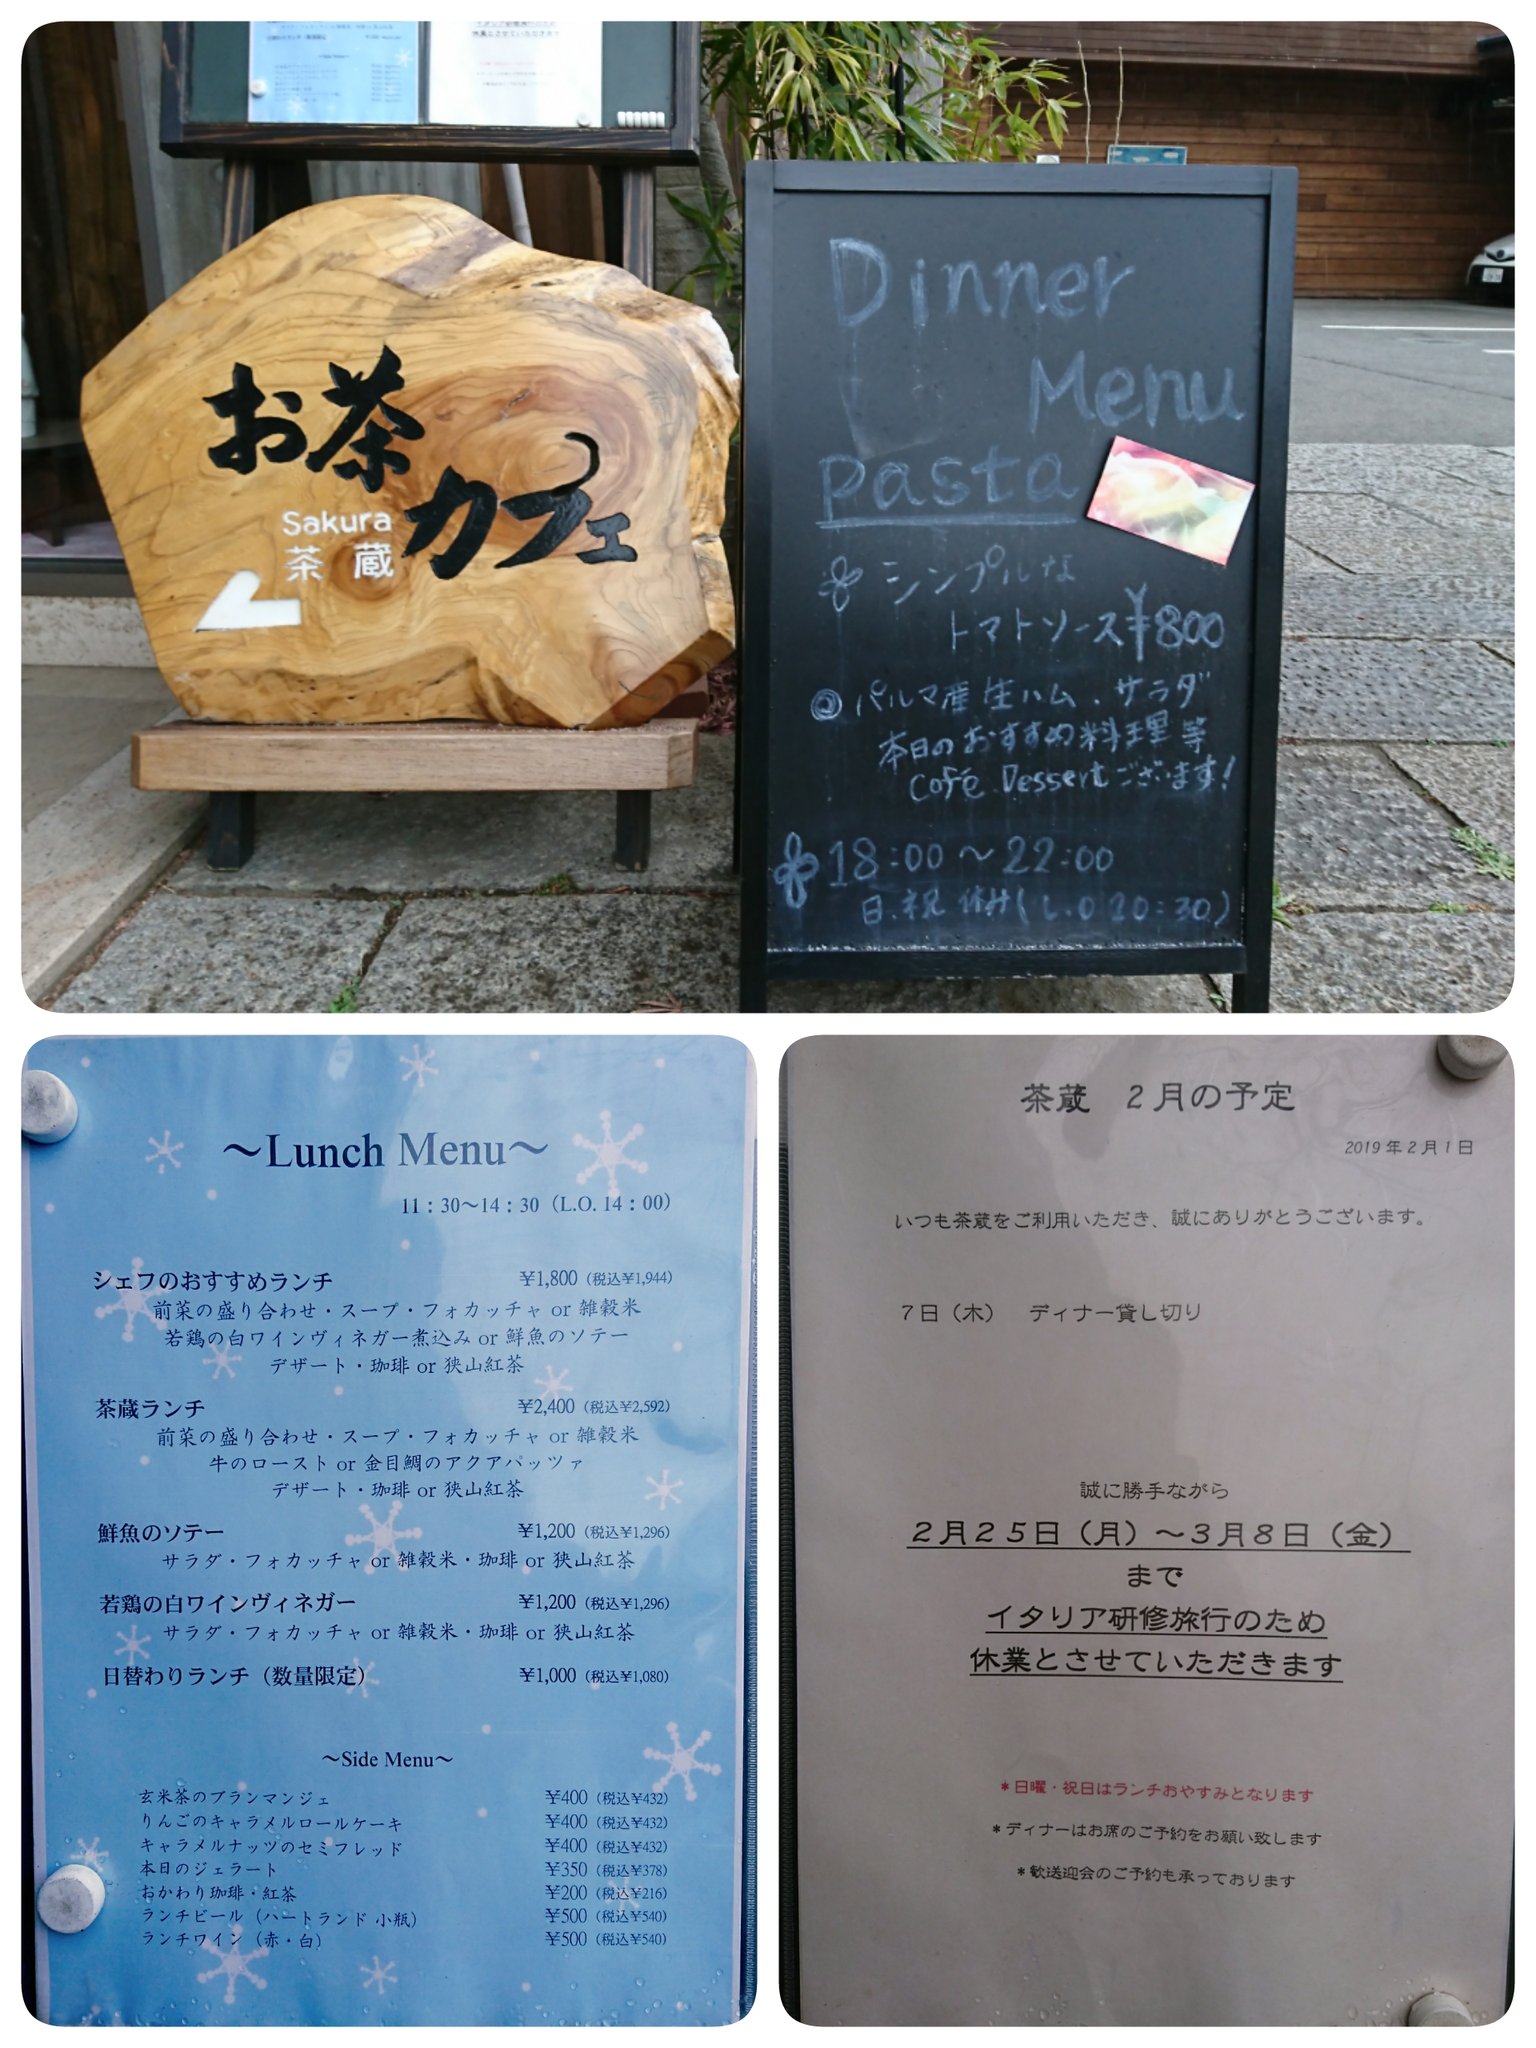 イタリア研修旅行のため
休業とさせていただきます
お茶
カフェ
Sakura
茶蔵
Dinner
Menu
Pasta
シンプルな
トマトソース ¥800
◎ パルマ産生ハム、サラダ
本日のおすすめ料理等
Café Dessertございます!
18:00～22:00
日、祝 休み(L.O 20:30)
～Lunch Menu～
11：30～14：30（L.O. 14：00）
シェフのおすすめランチ ¥1,800（税込¥1,944）
前菜の盛り合わせ・スープ・フォカッチャ or 雑穀米
若鶏の白ワインヴィネガー煮込み or 鮮魚のソテー
デザート・珈琲 or 狭山紅茶
茶蔵ランチ ¥2,400（税込¥2,592）
前菜の盛り合わせ・スープ・フォカッチャ or 雑穀米
牛のロースト or 金目鯛のアクアパッツァ
デザート・珈琲 or 狭山紅茶
鮮魚のソテー ¥1,200（税込¥1,296）
サラダ・フォカッチャ or 雑穀米・珈琲 or 狭山紅茶
若鶏の白ワインヴィネガー ¥1,200（税込¥1,296）
サラダ・フォカッチャ or 雑穀米・珈琲 or 狭山紅茶
日替わりランチ（数量限定） ¥1,000（税込¥1,080）
～Side Menu～
玄米茶のブランマンジェ ¥400（税込¥432）
りんごのキャラメルロールケーキ ¥400（税込¥432）
キャラメルナッツのセミフレッド ¥400（税込¥432）
本日のジェラート ¥350（税込¥378）
おかわり珈琲・紅茶 ¥200（税込¥216）
ランチビール（ハートランド 小瓶） ¥500（税込¥540）
ランチワイン（赤・白） ¥500（税込¥540）
茶蔵 ２月の予定
2019年2月1日
いつも茶蔵をご利用いただき、誠にありがとうございます。
７日（木） ディナー貸し切り
誠に勝手ながら
２月２５日（月）～３月８日（金）
まで
イタリア研修旅行のため
休業とさせていただきます
＊日曜・祝日はランチおやすみとなります
＊ディナーはお席のご予約をお願い致します
＊歓送迎会のご予約も承っております